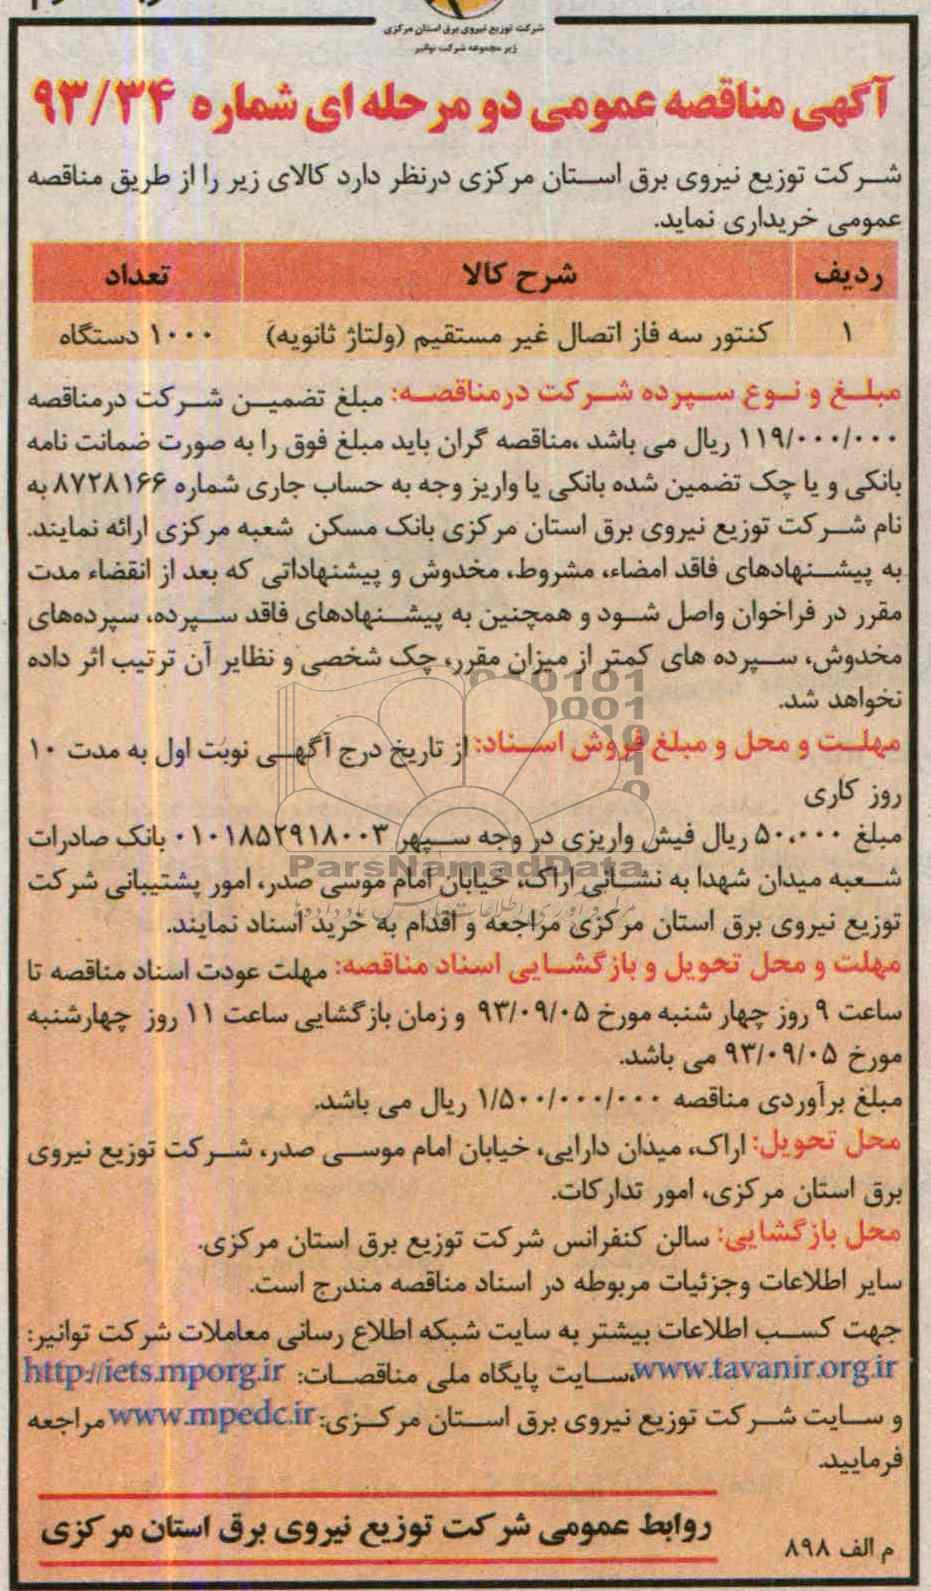 شرکت توزیع نیروی برق استان مرکزی
زیر مجموعه شرکت توانیر
آگهی مناقصه عمومی دو مرحله ای شماره ۹۳/۳۴
شرکت توزیع نیروی برق استان مرکزی درنظر دارد کالای زیر را از طریق مناقصه
عمومی خریداری نماید.
ردیف شرح کالا تعداد
۱ کنتور سه فاز اتصال غیر مستقیم (ولتاژ ثانویه) ۱۰۰۰ دستگاه
مبلغ و نوع سپرده شرکت درمناقصه: مبلغ تضمین شرکت درمناقصه
۱۱۹/۰۰۰/۰۰۰ ریال می باشد ،مناقصه گران باید مبلغ فوق را به صورت ضمانت نامه
بانکی و یا چک تضمین شده بانکی یا واریز وجه به حساب جاری شماره ۸۷۲۸۱۶۶ به
نام شرکت توزیع نیروی برق استان مرکزی بانک مسکن شعبه مرکزی ارائه نمایند.
به پیشنهادهای فاقد امضاء، مشروط، مخدوش و پیشنهاداتی که بعد از انقضاء مدت
مقرر در فراخوان واصل شود و همچنین به پیشنهادهای فاقد سپرده، سپرده‌های
مخدوش، سپرده های کمتر از میزان مقرر، چک شخصی و نظایر آن ترتیب اثر داده
نخواهد شد.
مهلت و محل و مبلغ فروش اسناد: از تاریخ درج آگهی نوبت اول به مدت ۱۰
روز کاری
مبلغ ۵۰،۰۰۰ ریال فیش واریزی در وجه سپهر ۰۱۰۱۸۵۲۹۱۸۰۰۳ بانک صادرات
ParsNamadData
شعبه میدان شهدا به نشانی اراک، خیابان امام موسی صدر، امور پشتیبانی شرکت
توزیع نیروی برق استان مرکزی مراجعه و اقدام به خرید اسناد نمایند.
مهلت و محل تحویل و بازگشایی اسناد مناقصه: مهلت عودت اسناد مناقصه تا
ساعت ۹ روز چهار شنبه مورخ ۹۳/۰۹/۰۵ و زمان بازگشایی ساعت ۱۱ روز چهارشنبه
مورخ ۹۳/۰۹/۰۵ می باشد.
مبلغ برآوردی مناقصه ۱/۵۰۰/۰۰۰/۰۰۰ ریال می باشد.
محل تحویل: اراک، میدان دارایی، خیابان امام موسی صدر، شرکت توزیع نیروی
برق استان مرکزی، امور تدارکات.
محل بازگشایی: سالن کنفرانس شرکت توزیع برق استان مرکزی.
سایر اطلاعات وجزئیات مربوطه در اسناد مناقصه مندرج است.
جهت کسب اطلاعات بیشتر به سایت شبکه اطلاع رسانی معاملات شرکت توانیر:
www.tavanir.org.ir،سایت پایگاه ملی مناقصات: http://iets.mporg.ir
و سایت شرکت توزیع نیروی برق استان مرکزی: www.mpedc.ir مراجعه
فرمایید.
روابط عمومی شرکت توزیع نیروی برق استان مرکزی
م الف ۸۹۸